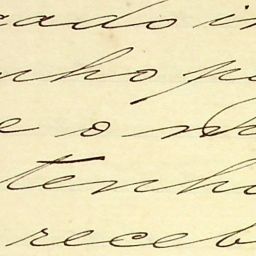 ado in
nho po
e o no
tenho
receb